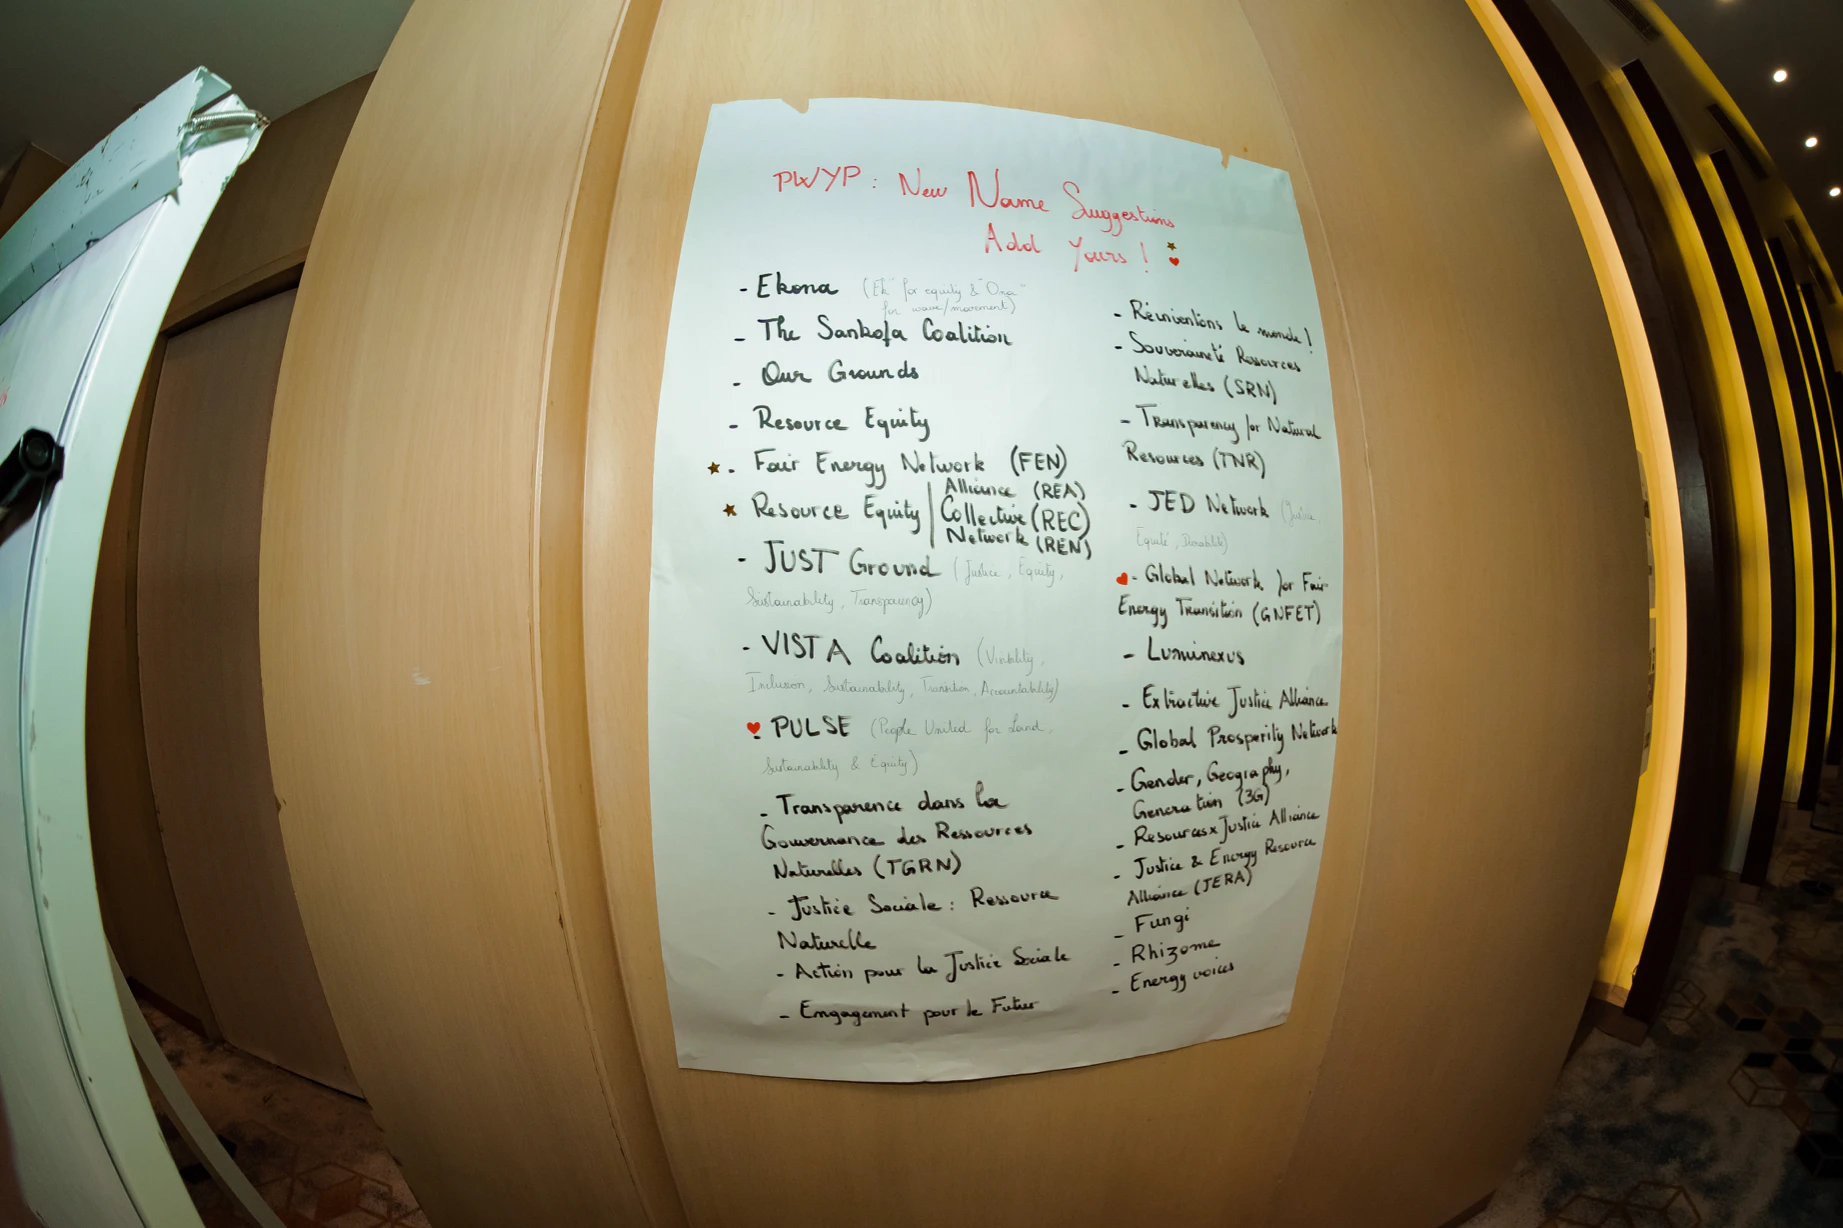 PWYP : New Name Suggestions
Add Yours !
- Ekona (Ek" for equity & "Ona"
for wave/movement)
- The Sankofa Coalition
- Our Grounds
- Resource Equity
- Fair Energy Network (FEN)
Resource Equity | Alliance (REA)
Collective (REC)
Network (REN)
- JUST Ground (Justice, Equity,
Sustainability, Transparency)
- VISTA Coalition (Visibility,
Inclusion, Sustainability, Transition, Accountability)
- PULSE (People United for Land,
Sustainability & Equity)
- Transparence dans la
Gouvernance des Ressources
Naturelles (TGRN)
- Justice Sociale : Ressource
Naturelle
- Action pour la Justice Sociale
- Engagement pour le Futur
- Réinventons le monde !
- Souveraineté Ressources
Naturelles (SRN)
- Transparency for Natural
Resources (TNR)
- JED Network (Justice,
Equité, Durabilité)
- Global Network for Fair
Energy Transition (GNFET)
- Luminexus
- Extractive Justice Alliance
- Global Prosperity Network
- Gender, Geography,
Generation (3G)
- Resources x Justice Alliance
- Justice & Energy Resource
Alliance (JERA)
- Fungi
- Rhizome
- Energy voices